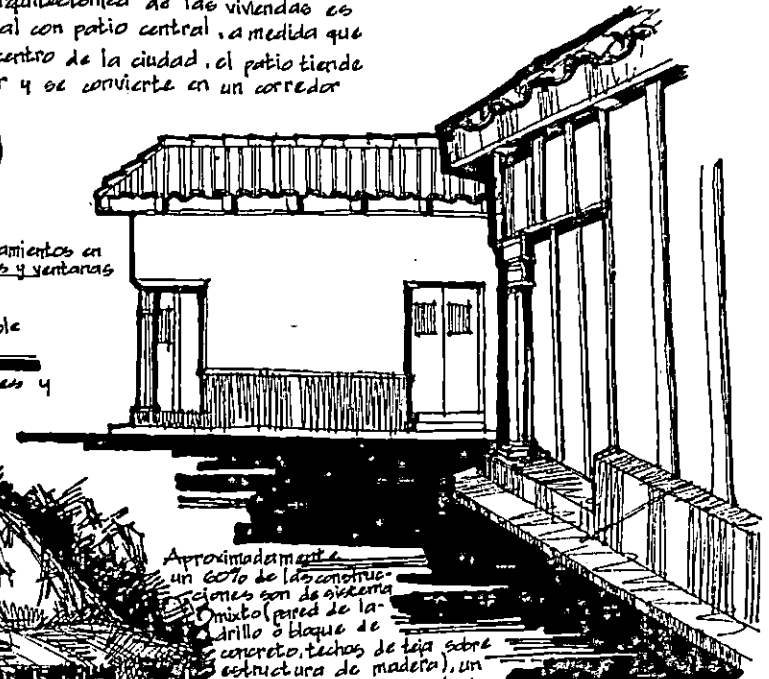 de las viviendas es
al con patio central, a medida que
centro de la ciudad, el patio tiende
r y se convierte en un corredor
amientos en
s y ventanas
ble
es y
Aproximadamente
un 60% de las construc-
ciones son de sistema
mixto (pared de la-
drillo ó bloque de
concreto, techos de teja sobre
estructura de madera), un